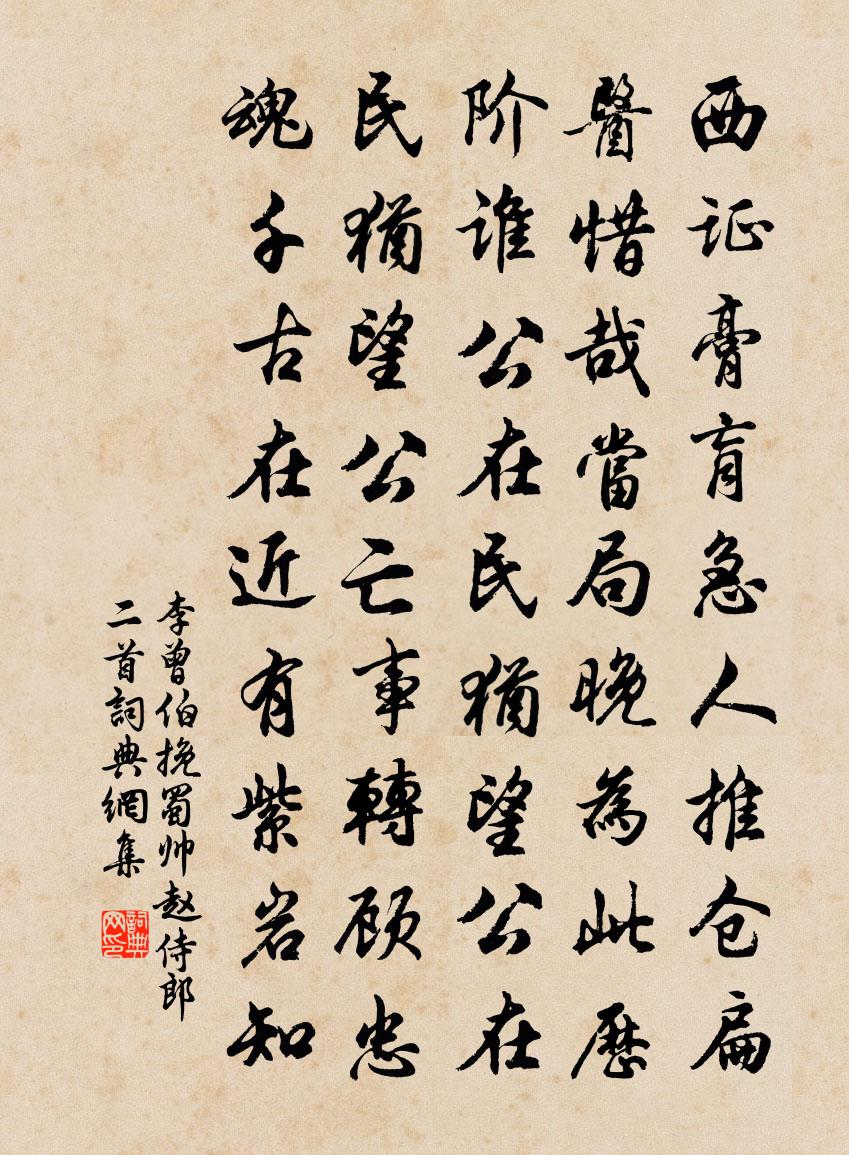 西证膏肓急人推仓扁
醫惜哉當局晚為此歷
阶谁公在民猶望公在
民猶望公亡事轉顾忠
魂千古在近有紫岩知
李曾伯挽蜀帅赵侍郎
二首詞典網集
詞典网印